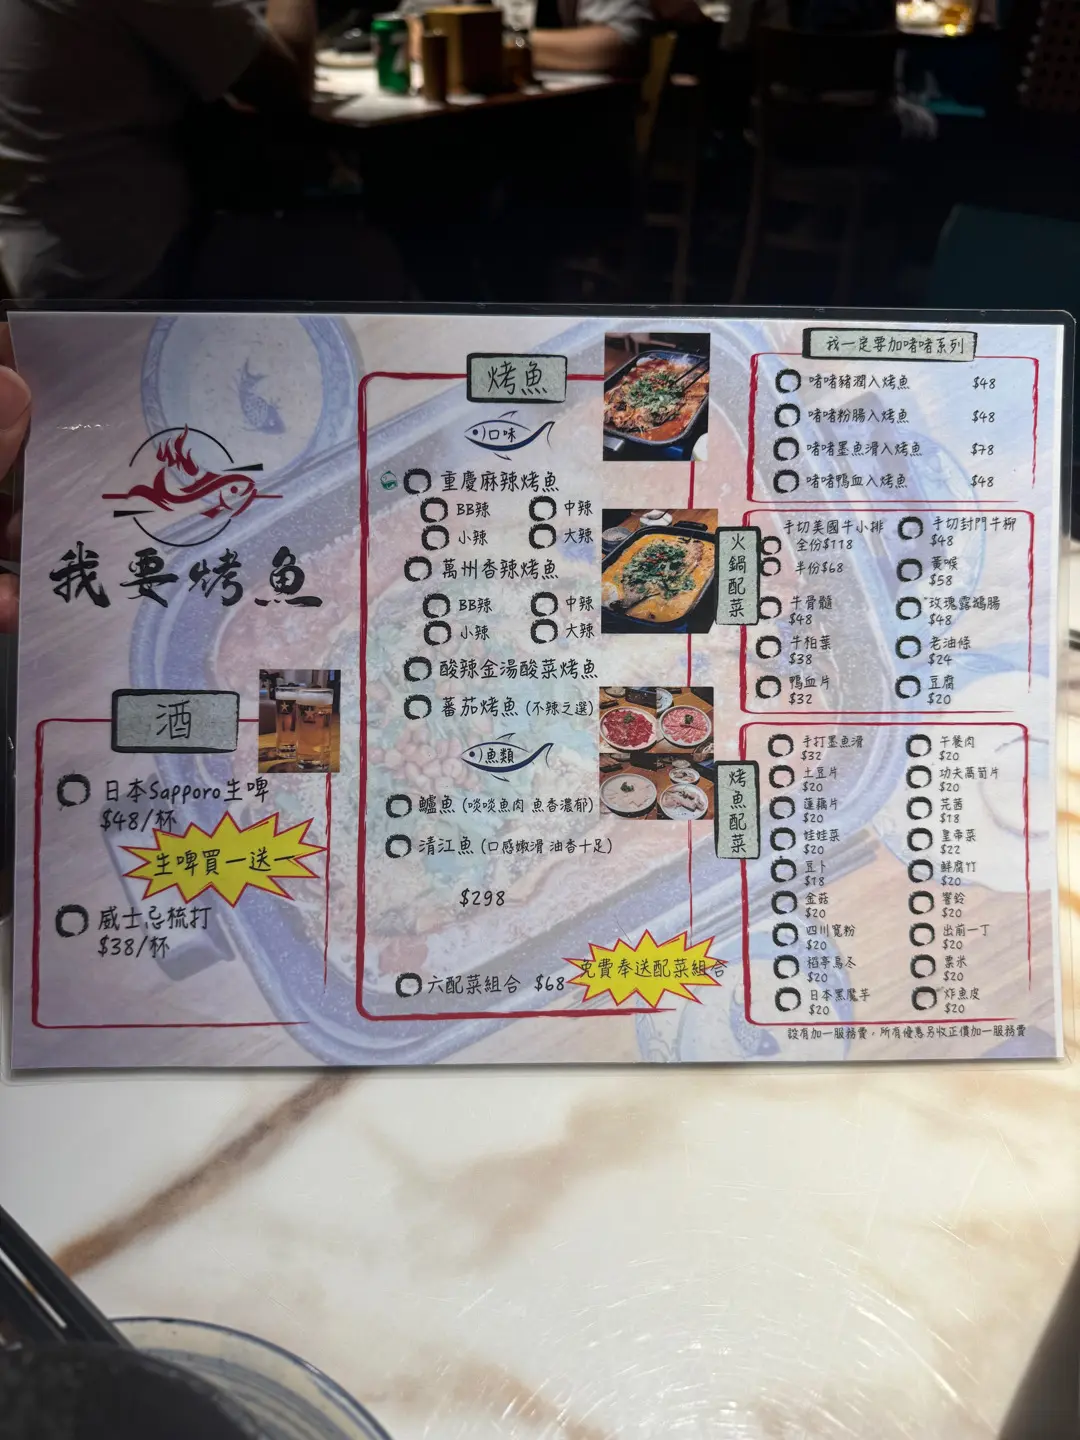 我要烤魚
酒
日本Sapporo生啤
$48/杯
生啤買一送一
威士忌梳打
$38/杯
烤魚
口味
重慶麻辣烤魚
BB辣 中辣
小辣 大辣
萬州香辣烤魚
BB辣 中辣
小辣 大辣
酸辣金湯酸菜烤魚
蕃茄烤魚 (不辣之選)
魚類
鱸魚 (啖啖魚肉 魚香濃郁)
清江魚 (口感嫩滑 油香十足)
$298
六配菜組合 $68
免費奉送配菜組合
我一定要加啫啫系列
啫啫豬潤入烤魚 $48
啫啫粉腸入烤魚 $48
啫啫墨魚滑入烤魚 $78
啫啫鴨血入烤魚 $48
火鍋配菜
手切美國牛小排
全份$118
半份$68
牛骨髓
$48
牛柏葉
$38
鴨血片
$32
手切封門牛柳
$48
黃喉
$58
玫瑰露鵝腸
$48
老油條
$24
豆腐
$20
烤魚配菜
手打墨魚滑
$32
土豆片
$20
蓮藕片
$20
娃娃菜
$20
豆卜
$18
金菇
$20
四川寬粉
$20
稻亭烏冬
$20
日本黑魔芋
$20
午餐肉
$20
功夫萵筍片
$20
芫茜
$18
皇帝菜
$22
鮮腐竹
$20
響鈴
$20
出前一丁
$20
粟米
$20
炸魚皮
$20
設有加一服務費，所有優惠另收正價加一服務費